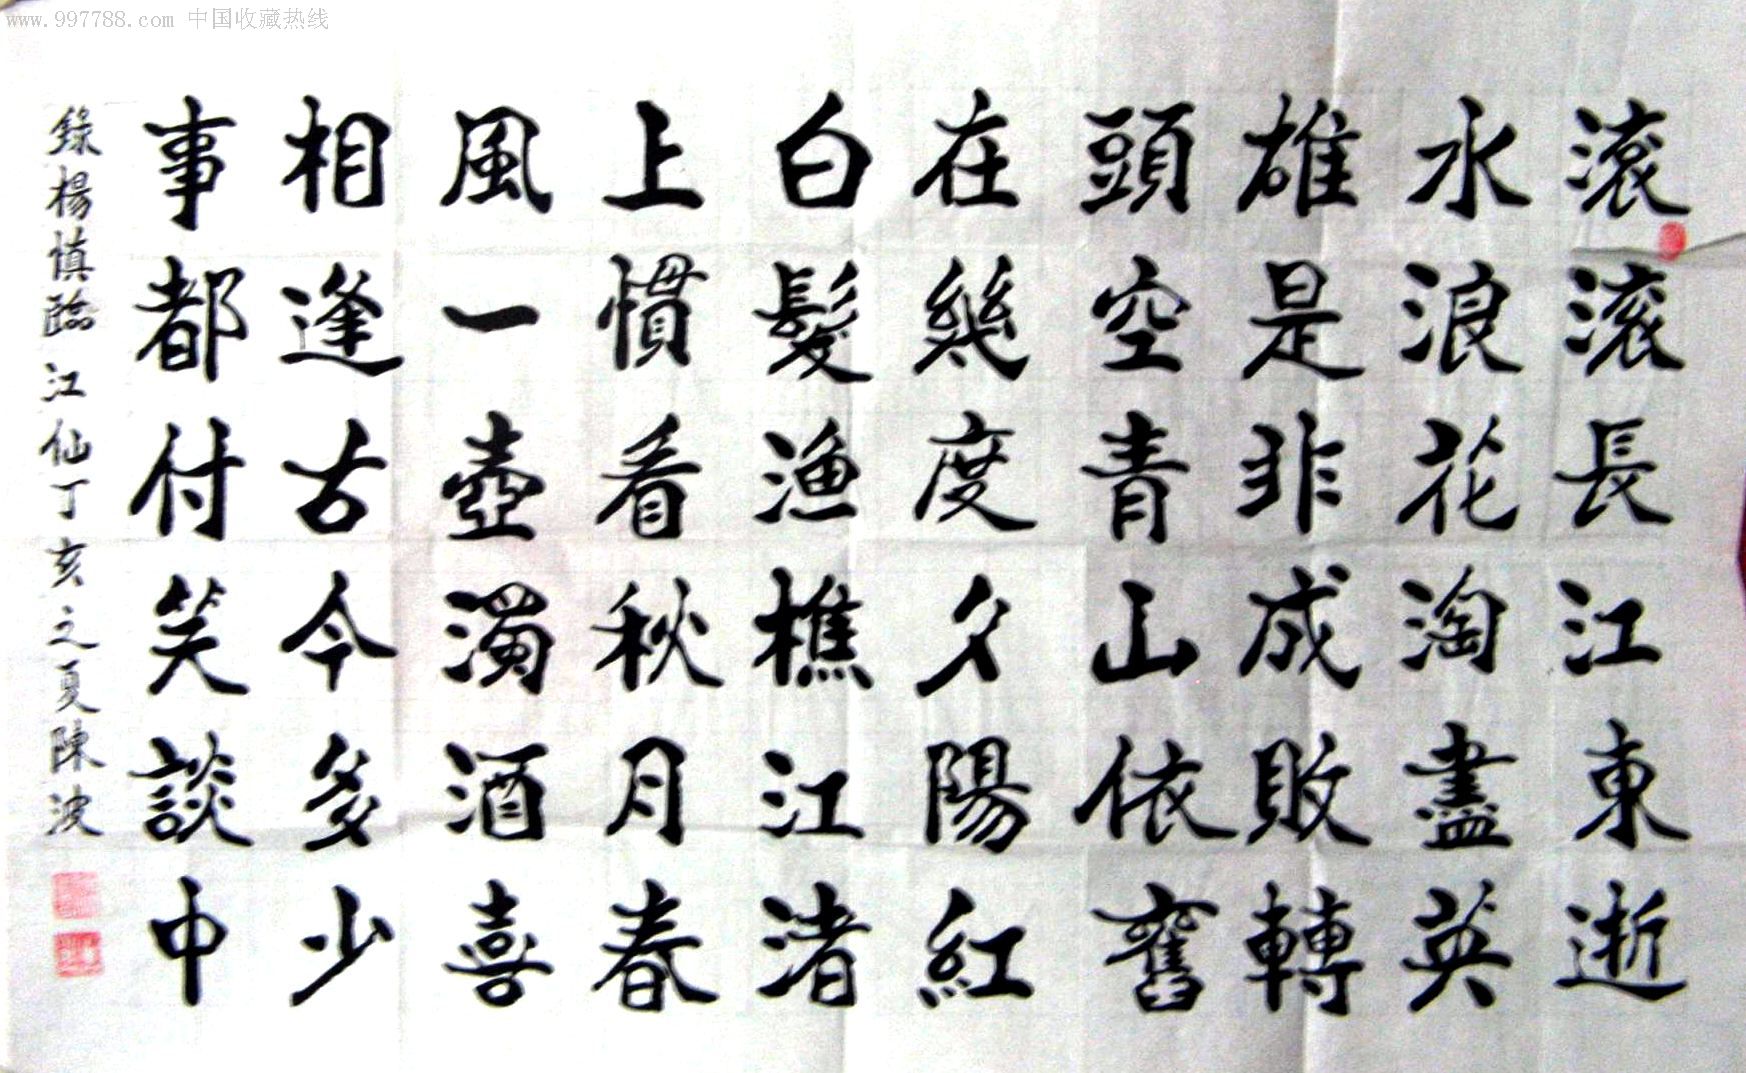 www.997788.com 中国收藏热线
滚滚長江東逝
水浪花淘盡英
雄是非成敗轉
頭空青山依舊
在幾度夕陽紅
白髮漁樵江渚
上慣看秋月春
風一壺濁酒喜
相逢古今多少
事都付笑談中
錄楊慎臨江仙丁亥之夏陳波